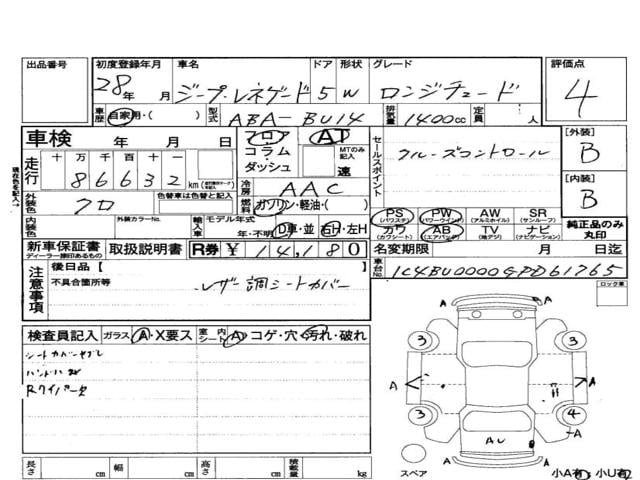 出品番号 初度登録年月 車名 ドア 形状 グレード 評価点
28年 月 ジープ・レネゲード 5 W ロンジチュード 4
車歴 自家用・( ) 型式 ABA-BU14 排気量 1400cc 定員 人
車検 年 月 日 フロア コラム・ダッシュ AT MTのみ記入 速
セールスポイント クルーズコントロール
[外装] B
走行 十 万 千 百 十 一
86632 km
現在色を記入↓
冷房 AAC
[内装] B
外装色 クロ 色替車は色替と記入 燃料 ガソリン・軽油・( )
PS (パワステ) PW (パワーウインド) AW (アルミホイル) SR (サンルーフ)
純正品のみ丸印
内装色 外装カラーNo. 輸入車 モデル年式 年・不明 D車・並 右H・左H
カワ (カワシート) AB (エアバック) TV (地デジ) ナビ (ナビゲーション)
新車保証書 ディーラー捺印あるもの 取扱説明書 R券 ¥ 14,180
名変期限 月 日迄
注意事項 後日品 [
不具合箇所等 レザー調シートカバー
車台No. 1C4BU0000GPD61765
ロック車
検査員記入 ガラス A・X要ス 室内シート A・コゲ・穴・汚れ・破れ
シートカバーヤブレ
ハンドルスレ
Rワイパー欠
3 3
A A
3 4
A
AU
A
スペア 小A有 小U有
長さ cm 幅 cm 高さ cm 積載量 kg